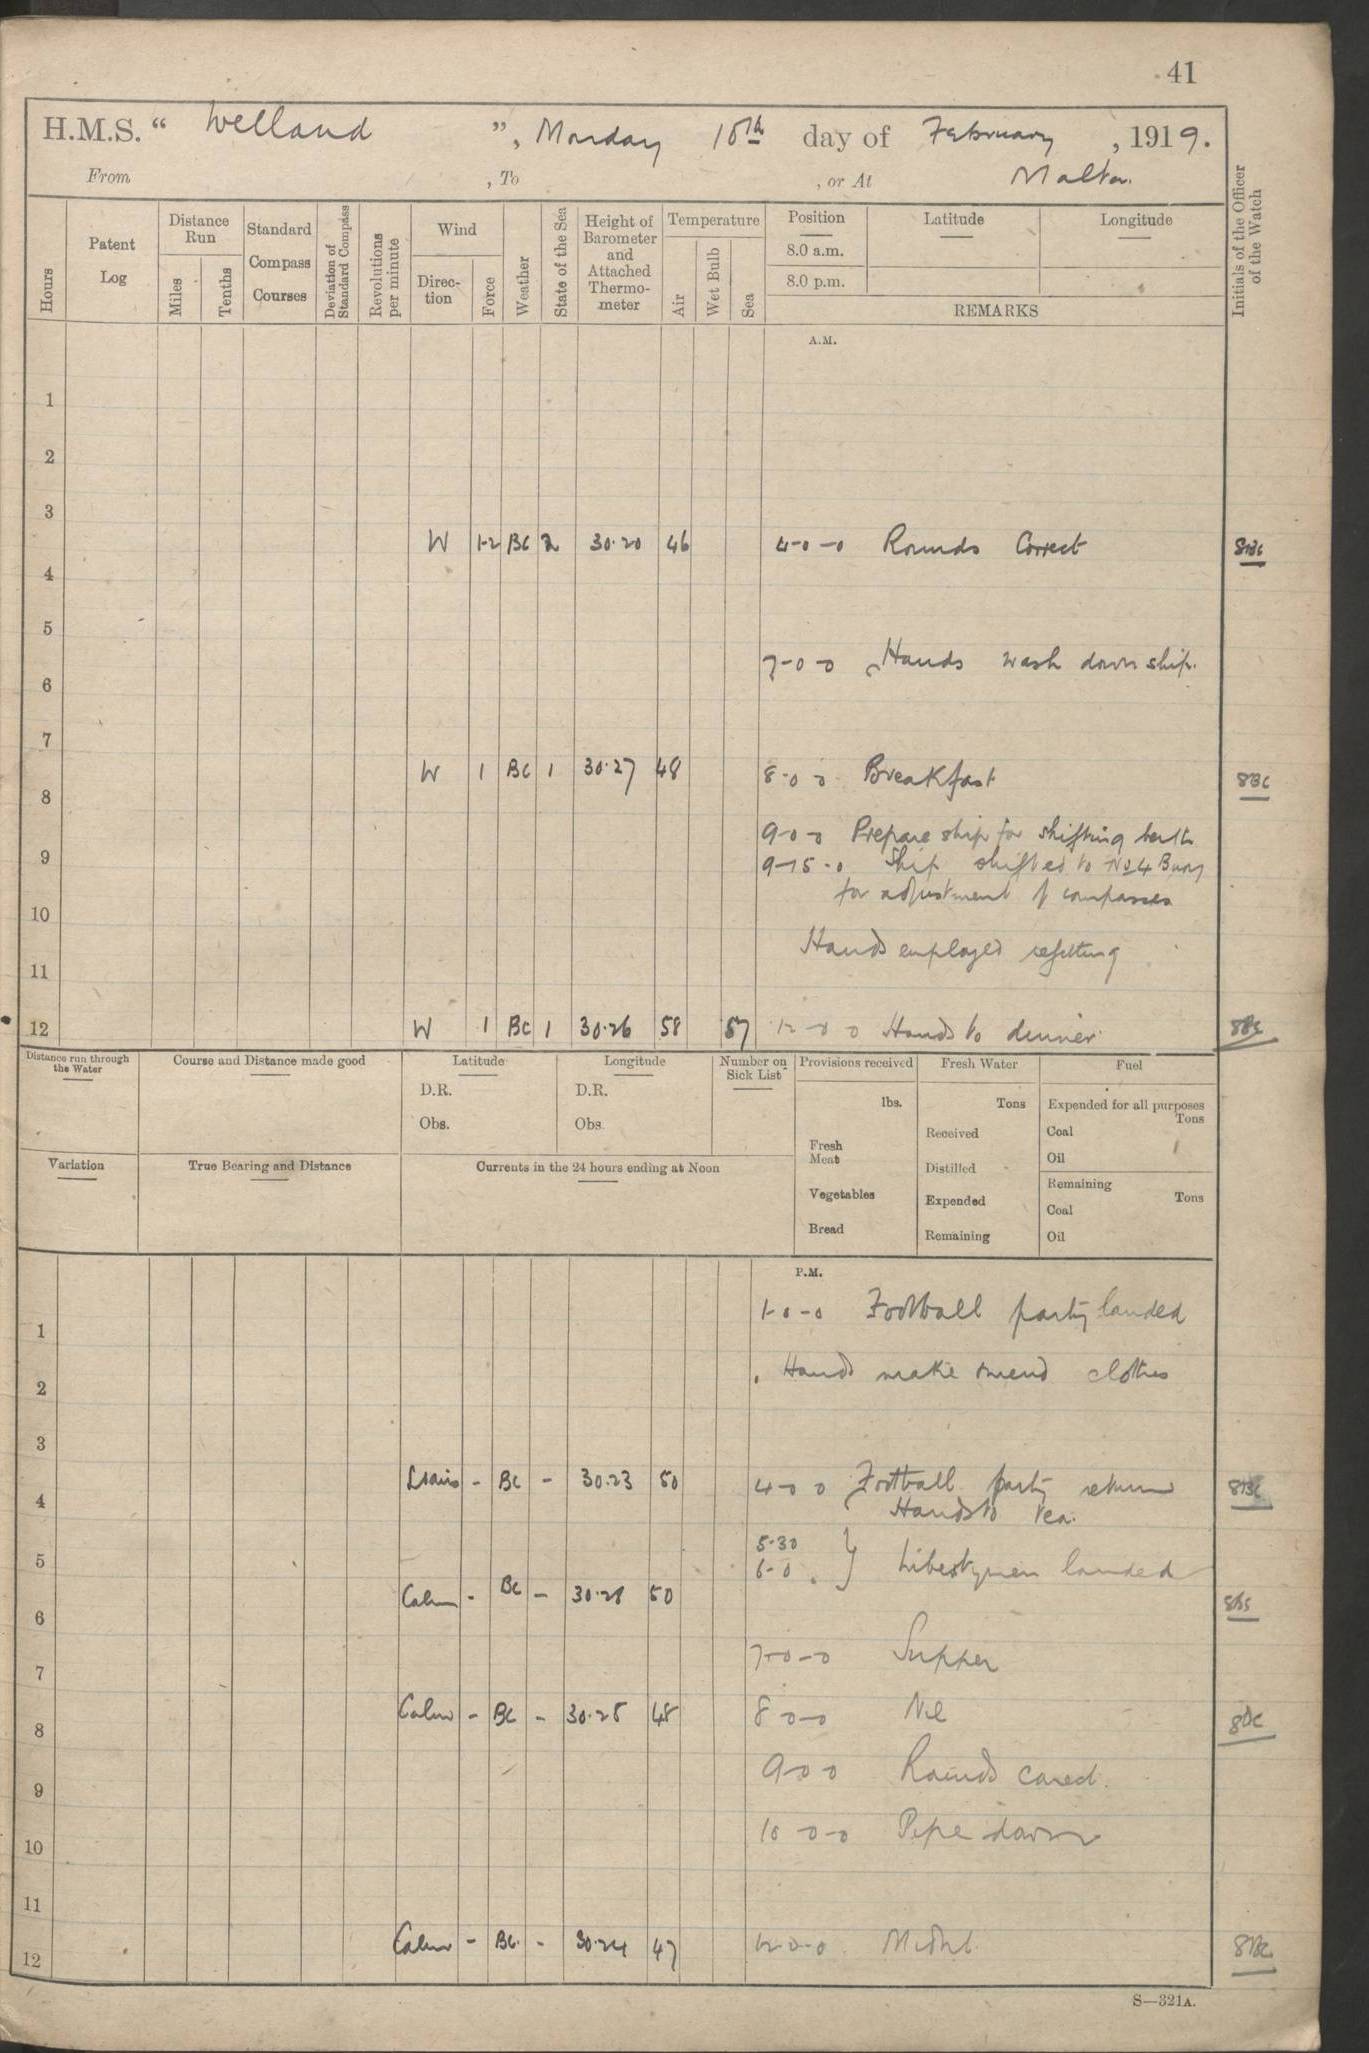 41
H.M.S. " Welland ", Monday 10th day of February, 1919.
From , To , or At Malta.
Hours
Patent Log
Distance Run
Miles
Tenths
Standard Compass Courses
Deviation of Standard Compass
Revolutions per minute
Wind
Direction
Force
Weather
State of the Sea
Height of Barometer and Attached Thermometer
Temperature
Air
Wet Bulb
Sea
Position
8.0 a.m.
8.0 p.m.
Latitude
Longitude
REMARKS
Initials of the Officer of the Watch
A.M.
1
2
3
W 1-2 BC 2 30.20 46 4-0-0 Rounds Correct
4
5
7-0-0 Hands wash down ship.
6
7
W 1 BC 1 30.27 48 8-0-0 Breakfast
8
9-0-0 Prepare ship for shifting berth
9 9-15-0 Ship shifted to No 4 Buoy
for adjustment of compasses
10
Hands employed refitting
11
12 W 1 BC 1 30.26 58 57 12-0-0 Hands to dinner
Distance run through the Water
Course and Distance made good
Latitude
D.R.
Obs.
Longitude
D.R.
Obs.
Number on Sick List
Provisions received
lbs.
Fresh Meat
Vegetables
Bread
Fresh Water
Tons
Received
Distilled
Expended
Remaining
Fuel
Expended for all purposes
Tons
Coal
Oil
Remaining
Tons
Coal
Oil
Variation
True Bearing and Distance
Currents in the 24 hours ending at Noon
P.M.
1-0-0 Football party landed
1
Hands make & mend clothes
2
3
- BC - 30.23 50 4-0-0 Football party return
4 Hands to tea.
5-30
5 6-0 } Libertymen landed
Calm - BC - 30.28 50
6
7-0-0 Supper
7
Calm - BC - 30.28 48 8-0-0 Nil
8
9-0-0 Rounds
9
10-0-0 Pipe down
10
11
Calm - BC - 30.24 47 12-0-0 Midnt.
12
S—321A.